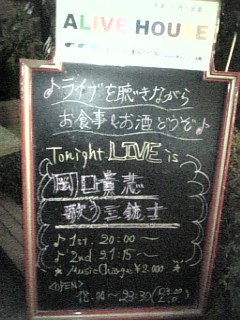 ALIVE HOUSE
♪ライブを聴きながら
お食事&お酒どうぞ♪
Tonight LIVE is
岡口貴志
歌う三銃士
♪ 1st. 20:00～
♪ 2nd 21:15～
★ Music Charge ¥2.000 ★
<OPEN>
18:00～23:30